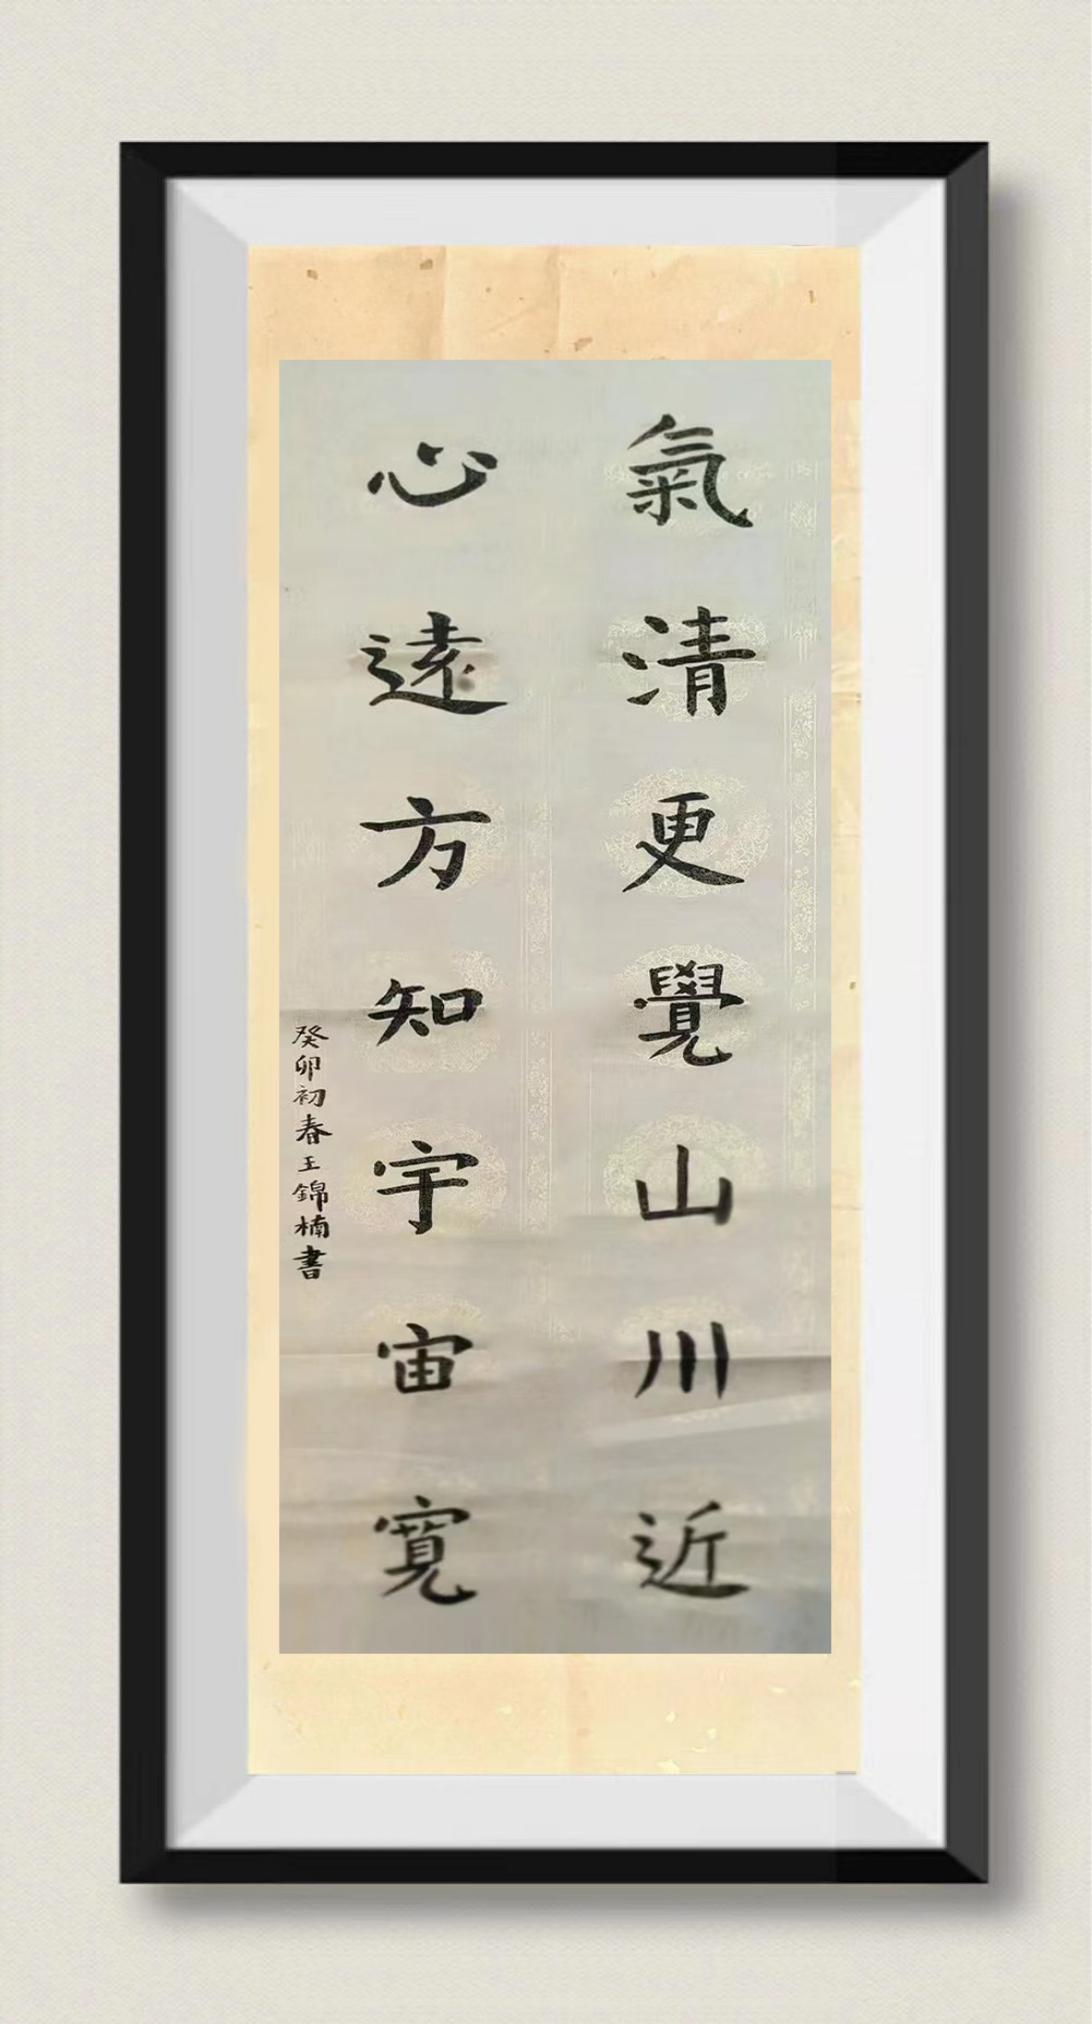 氣清更覺山川近
心遠方知宇宙寬
癸卯初春王錦楠書